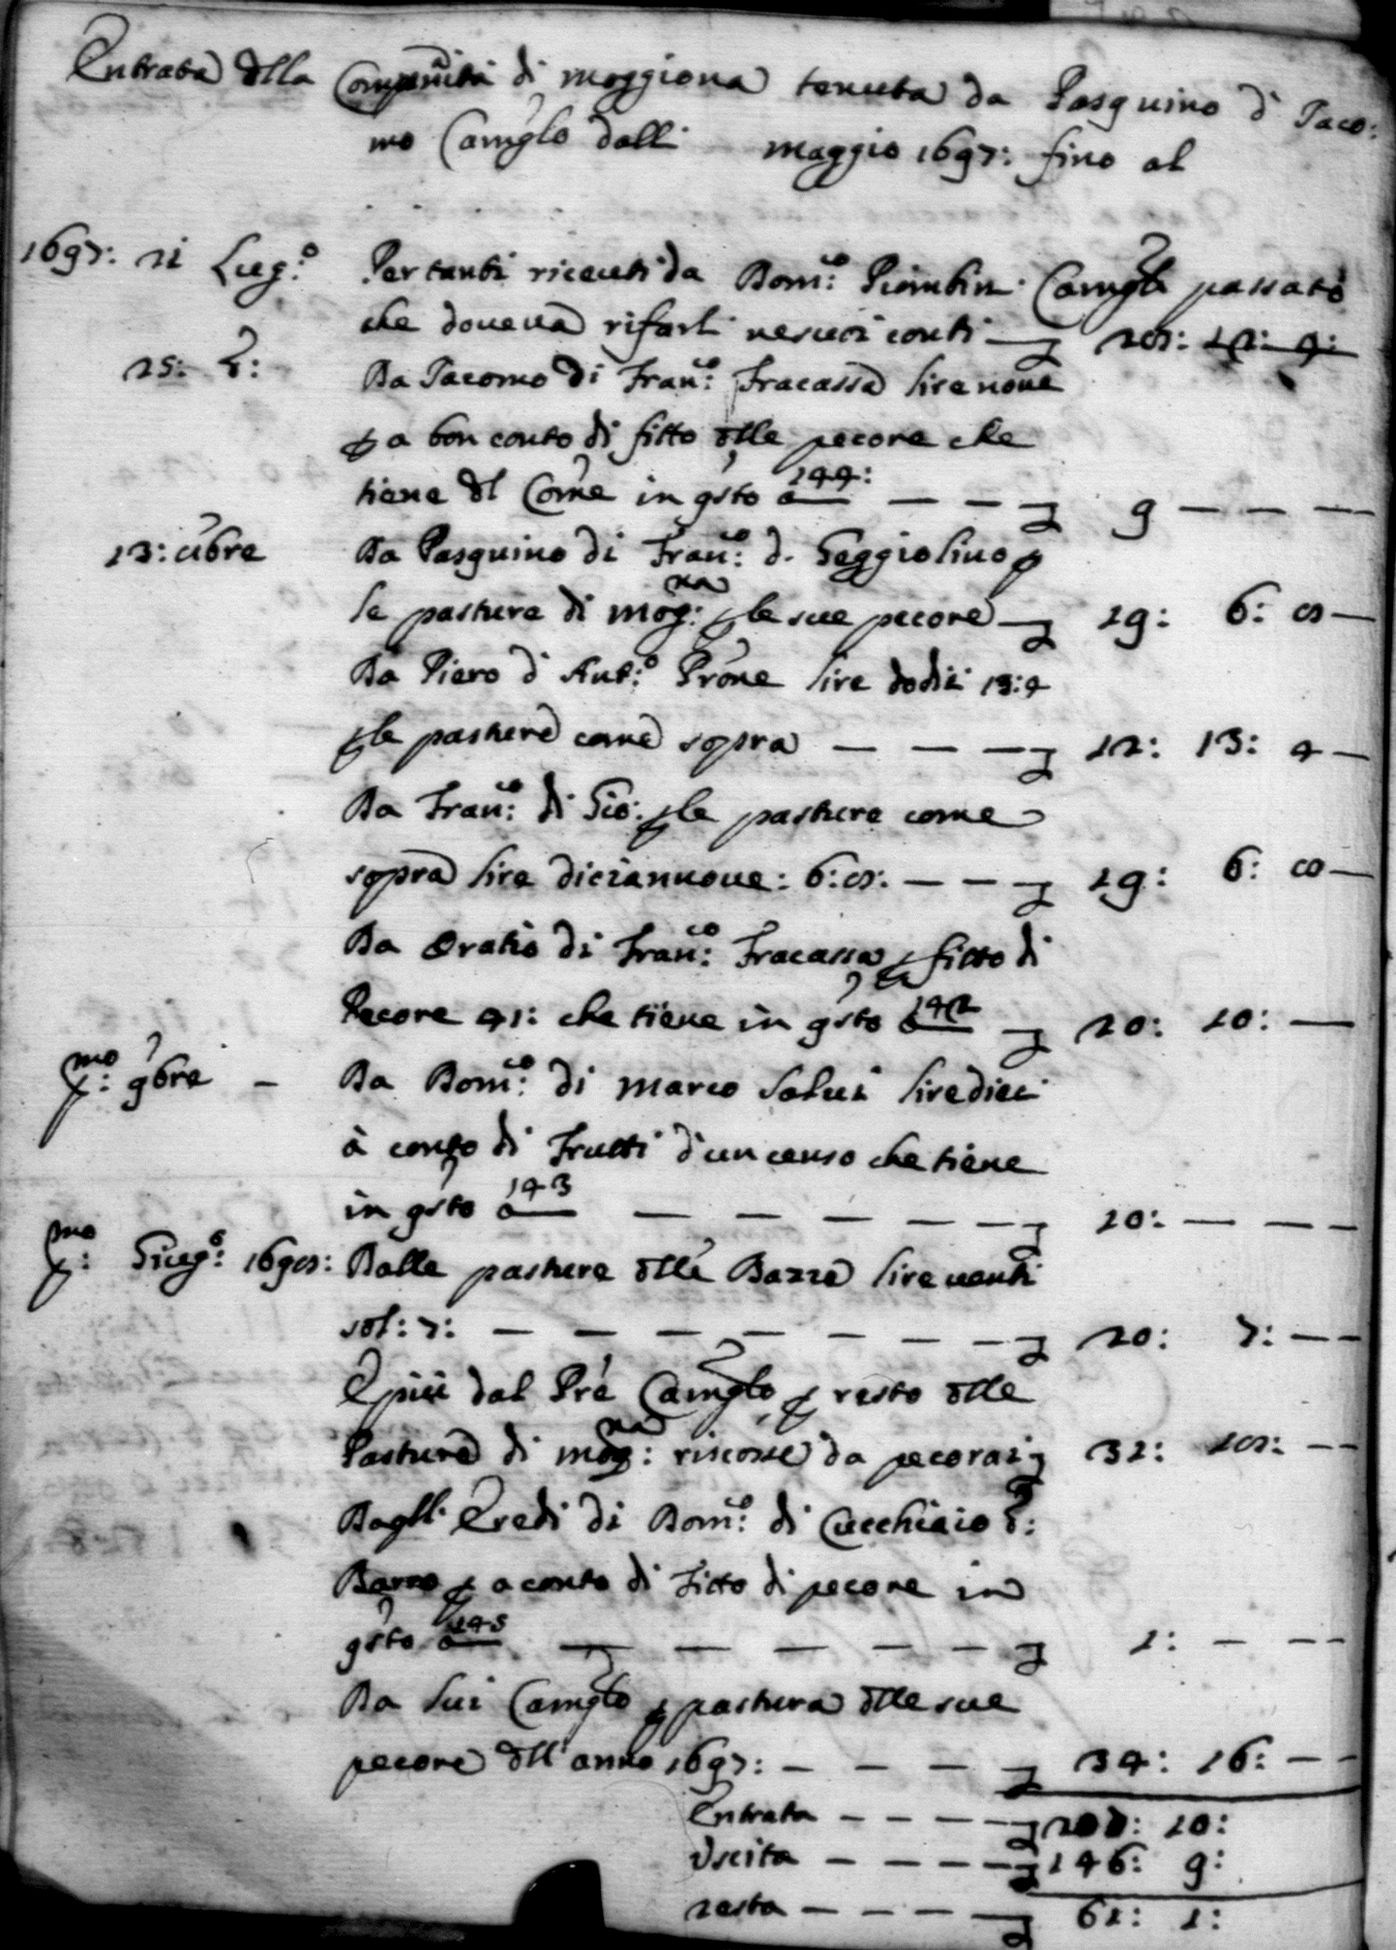 Entrata dlla Compagnità di moggiona tenuta da Pasquino d' Jaco:
mo Camglo dalli maggio 1697: fino al
1697: 21 Lug:o Per tanti riceuti da Dom:co Piombin. Camglo passato
che doueua rifarli ne suoi conti — 28: 12: 4:
25: d: Da Jacomo di Fran:co Fracassa lire noue
p a bon conto di fitto dlle pecore che
tiene dl Come in qsto a 144: — — — 9 — — —
13: 8bre Da Pasquino di Fran:co d. Seggiolino p
le pasture di mog:na p le sue pecore — 19: 6: 8 —
Da Piero d' Ant:o Prone lire dodici 13:4
p le pasture come sopra — — — 12: 13: 4 —
Da Fran:co di Gio: p le pasture come
sopra lire diciannoue: 6:8: — — — 19: 6: 8 —
Da Oratio di Fran:co Fracassa p fitto di
Pecore 41: che tiene in qsto a 142 — 20: 10: —
p:mo 9bre — Da Dom:co di Marco Salui lire dieci
à conto di Frutti d'un censo che tiene
in qsto a 143 — — — — — — 10: — — —
p:mo Giug:o 1698: Dalle pasture dlle Bazze lire uenti
sol: 7: — — — — — — — 20: 7: — —
E più dal Prè Camglo p resto dlle
Pasture di mog:na riscosse da pecorai 31: 10: — —
Dagli Eredi di Dom:co di Cucchiaio d:
Barzo p a conto di Fitto di pecore in
qsto a 145 — — — — — — 1: — — —
Da lui Camglo p pastura dlle sue
pecore dll anno 1697: — — — — 34: 16: — —
Entrata — — — — 207: 10:
Vscita — — — — 146: 9:
resta — — — — 61: 1: